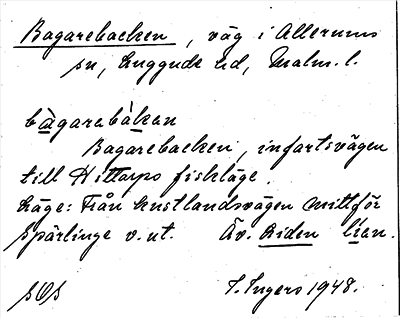 Bagarebacken, väg i Allerums
sn, Luggude hd, Malm. l.
bàgarebàkan
Bagarebacken, infartsvägen
till Hittarps fiskläge.
Läge: Från kustlandsvägen mittför
Spärlinge v. ut. Äv. Riden lían.
SOS
I. Ingers 1948.